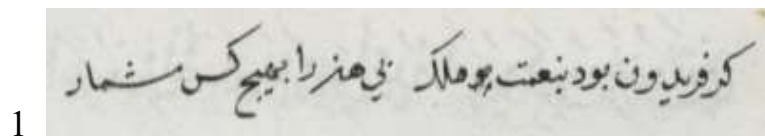 1 کر فریدون بود بنعمت و ملک بی هنر را بهیچ کس مشمار